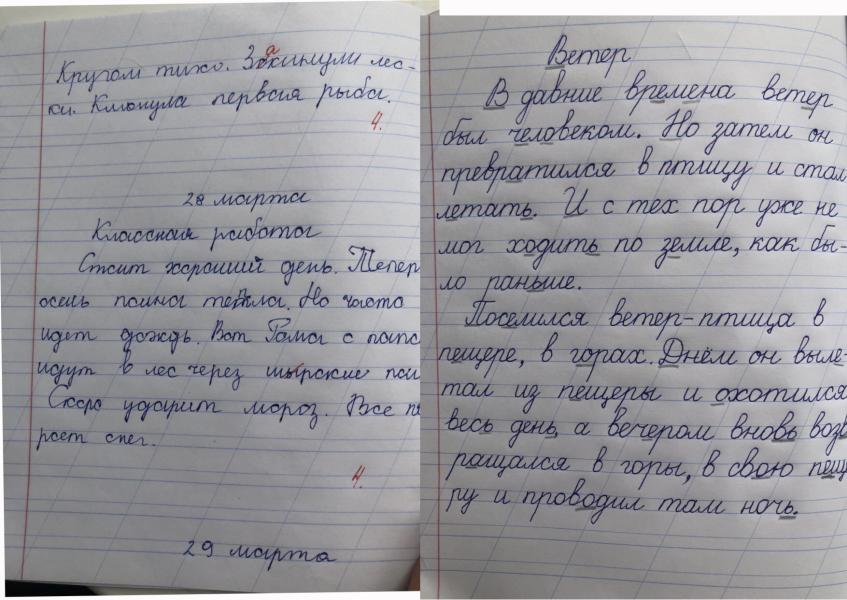 Кругом тихо. Закинули лес-
ки. Клюнула первая рыба.
4.
28 марта
Классная работа
Стоит хороший день. Тепер
осень полна тепла. Но часто
идет дождь. Вот Рома с папо
идут в лес через широкие пол
Скоро ударит мороз. Все по
роет снег.
4.
29 марта
Ветер
В давние времена ветер
был человеком. Но затем он
превратился в птицу и стал
летать. И с тех пор уже не
мог ходить по земле, как бы-
ло раньше.
Поселился ветер-птица в
пещере, в горах. Днём он выле-
тал из пещеры и охотился
весь день, а вечером вновь возв
ращался в горы, в свою пещ
ру и проводил там ночь.